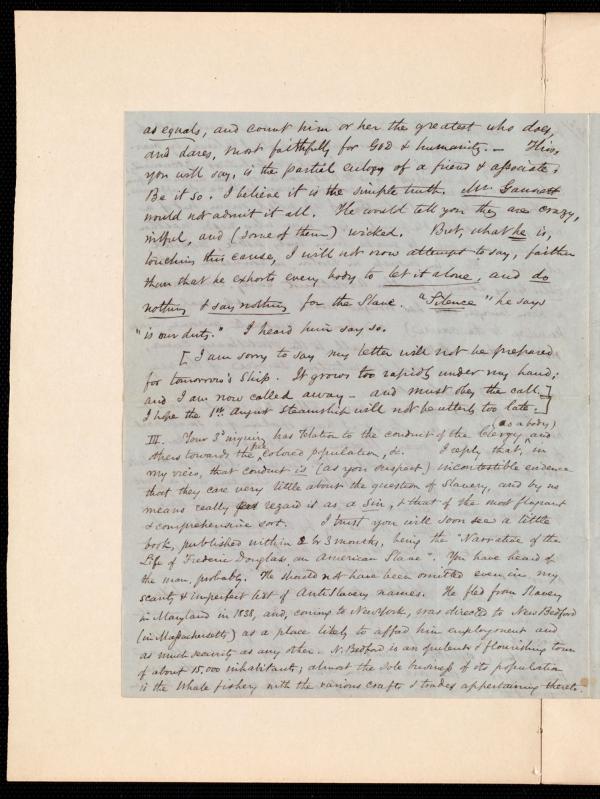 as equals, and count him or her the greatest who does,
and dares, most faithfully for God & humanity. — This,
you will say, is the partial eulogy of a friend & associate.
Be it so. I believe it is the simple truth. Mr. Gannett
would not admit it all. He would tell you they are crazy,
wilful, and (some of them) wicked. But, what he is,
touching this cause, I will not now attempt to say, farther
than that he exhorts every body to let it alone, and do
nothing & say nothing for the Slave. "Silence" he says
"is our duty." I heard him say so.
[I am sorry to say my letter will not be prepared
for tomorrow's Ship. It grows too rapidly under my hand;
and I am now called away — and must obey the call.
I hope the 1st August Steamship will not be utterly too late.]
III. Your 3d inquiry has relation to the conduct of the Clergy (as a body) and
others towards the free colored population, &c. I reply that, in
my view, that conduct is (as you suspect) incontestible evidence
that they care very little about the question of Slavery, and by no
means really regard it as a Sin, & that of the most flagrant
& comprehensive sort. I trust you will soon see a little
book, published within 2 or 3 months, being the "Narrative of the
Life of Frederic Douglass, an American Slave". You have heard of
the man, probably. He should not have been omitted even in my
scanty & imperfect list of AntiSlavery names. He fled from Slavery
in Maryland in 1838, and, coming to New York, was directed to New Bedford
(in Massachusetts) as a place likely to afford him employment and
as much security as any other. N. Bedford is an opulent & flourishing town
of about 15,000 inhabitants; almost the sole business of its population
is the Whale fishery with the various crafts & trades appertaining thereto.